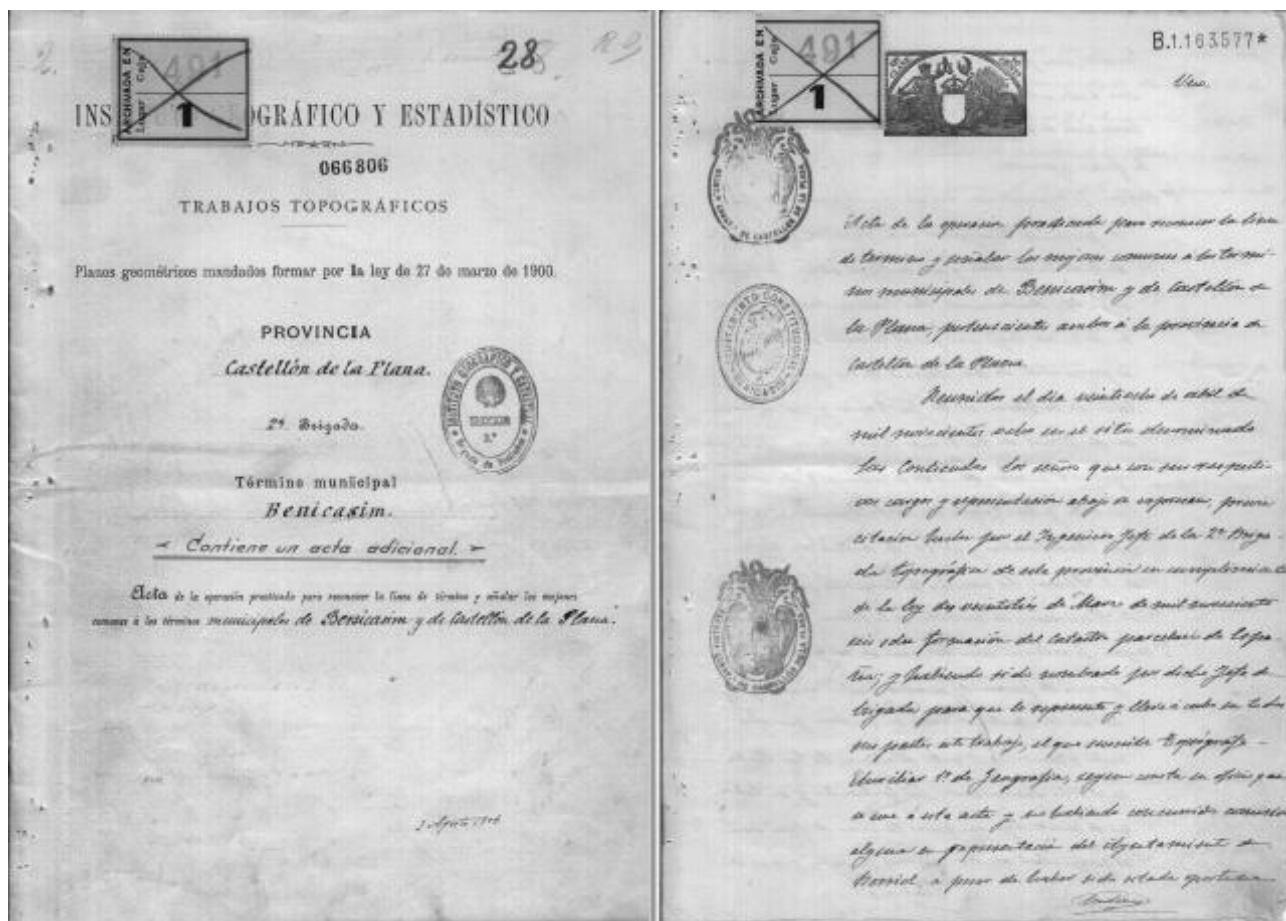 28
ARCHIVADA EN
Lugar Caja
491
1
INS OGRÁFICO Y ESTADÍSTICO
066806
TRABAJOS TOPOGRÁFICOS
Planos geométricos mandados formar por la ley de 27 de marzo de 1900.
PROVINCIA
Castellón de la Plana.
2ª Brigada.
INSTITUTO GEOGRÁFICO Y ESTADÍSTICO
Término municipal
Benicasim.
Contiene un acta adicional.
Acta de la operación practicada para reconocer la línea de término y señalar los mojones
comunes á los términos municipales de Benicasim y de Castellón de la Plana.
ARCHIVADA EN
Lugar Caja
491
1
B.1.163577*
AYUNTAMIENTO CONSTITUCIONAL
BENICASIM
Acta de la operacion practicada para reconocer la linea
de termino y señalar los mojones comunes a los termi-
nos municipales de Benicasim y de Castellón de
la Plana, pertenecientes ambos á la provincia de
Castellón de la Plana.
Reunidos el dia veintiocho de abril de
mil novecientos ocho en el sitio denominado
los señores que con sus respecti-
vos cargos y representación abajo se expresan, previa
citacion hecha por el Ingeniero Jefe de la 2ª Briga-
da topográfica de esta provincia en cumplimiento
de la ley de veintitrés de Marzo de mil novecientos
seis sobre formación del catastro parcelario de Espa-
ña; y habiendo sido nombrado por dicho Jefe de
brigada para que le represente y lleve á cabo en todas
sus partes este trabajo, el que suscribe Topógrafo
Auxiliar 1º de Geografía, segun consta en oficio que
se une á esta acta y no habiendo concurrido comision
alguna en representación del Ayuntamiento de
Borriol, á pesar de haber sido citada oportuna